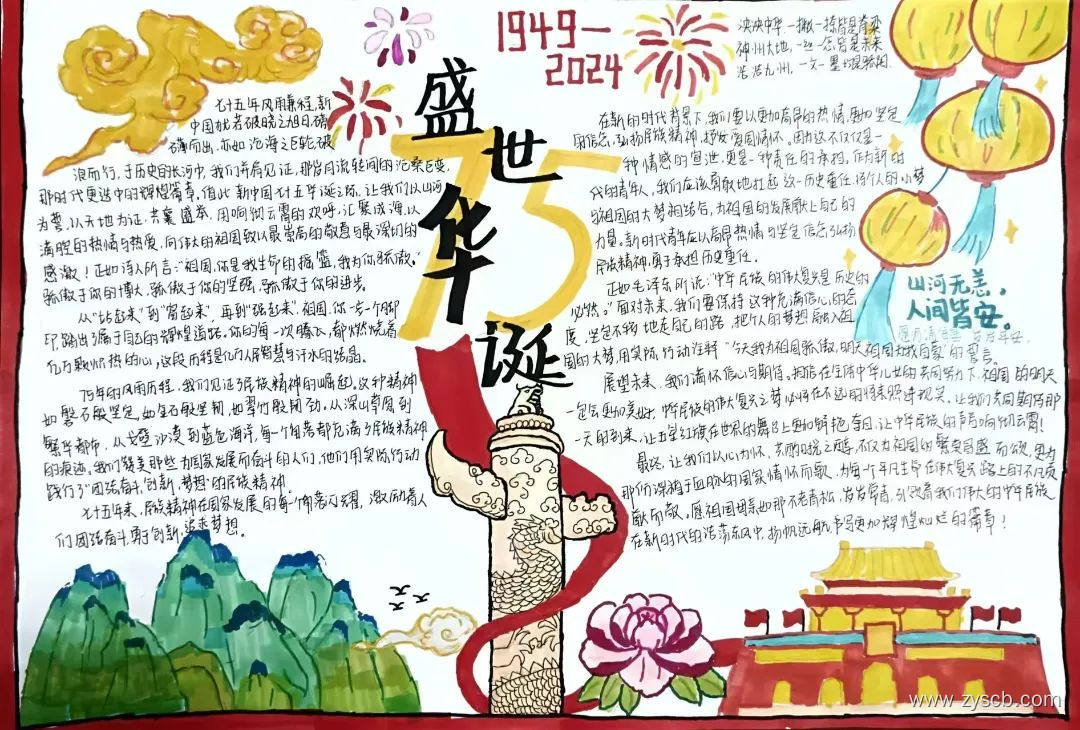 1949—
2024
盛世华诞
75
泱泱中华,一撇一捺皆是脊梁
神州大地,一山一念皆是未来
浩浩九州,一文一墨书现
七十五年风雨兼程,新
中国犹若破晓之旭日,磅
礴而出,亦如沧海之巨轮,破
浪而行,于历史的长河中,我们并肩见证,那岁月流转间的沧桑巨变,
那时代更迭中的辉煌篇章,值此新中国七十五华诞之际,让我们以山河
为誓,以天地为证,共襄盛举,用响彻云霄的欢呼,汇聚成海,以
满腔的热情与热爱,向伟大的祖国致以最崇高的敬意与最深切的
感激!正如诗人所言:“祖国,你是我生命的摇篮,我为你骄傲。”
骄傲于你的博大,骄傲于你的坚强,骄傲于你的进步。
从“站起来”到“富起来”,再到“强起来”,祖国,你一步一个脚
印,踏出了属于自己的辉煌道路,你的每一次腾飞,都燃烧着
亿万颗炽热的心,这段历程是亿万人民智慧与汗水的结晶。
75年的风雨历程,我们见证了民族精神的崛起。这种精神
如磐石般坚定,如金石般坚韧,如翠竹般韧劲。从深山草原到
繁华都市,从戈壁沙漠到蓝色海洋,每一个角落都充满了民族精神
的痕迹,我们赞美那些为国家发展而奋斗的人们,他们用实际行动
践行了“团结奋斗,创新,梦想”的民族精神。
七十五年来,民族精神在国家发展的每个角落闪耀,激励着人
们团结奋斗,勇于创新,追逐梦想。
在新的时代背景下,我们要以更加高昂的热情,更加坚定
的信念,弘扬民族精神,抒发爱国情怀。因为这不仅仅是一
种情感的宣泄,更是一种责任的承担。作为新时
代的青年人,我们应该勇敢地扛起这一历史重任,将个人的小梦
与祖国的大梦相结合,为祖国的发展献上自己的
力量。新时代青年应以高昂热情与坚定信念弘扬
民族精神,勇于承担历史重任。
正如毛泽东所说:“中华民族的伟大复兴是历史的
必然。”面对未来,我们要保持这种充满信心的态
度,坚定不移地走自己的路,把个人的梦想融入祖
国的大梦,用实际行动诠释“今天我为祖国骄傲,明天祖国为我自豪”的誓言。
展望未来,我们满怀信心与期待。相信在全体中华儿女的共同努力下,祖国的明天
一定会更加美好,中华民族的伟大复兴之梦必将在不远的将来照进现实。让我们共同期待那
一天的到来,让五星红旗在世界的舞台上更加鲜艳夺目,让中华民族的声音响彻云霄!
最终,让我们以心为怀,共酌时光之醇,不仅为祖国的繁荣昌盛而颂,更为
那份深植于血脉的国家情怀而歌,为每个平凡生命在伟大复兴路上的不凡贡
献而敬。愿祖国母亲如那不老青松,岁岁常青,引领着我们伟大的中华民族
在新时代的浩荡东风中,扬帆远航,书写更加辉煌灿烂的篇章!
山河无恙,
人间皆安。
www.zyscb.com